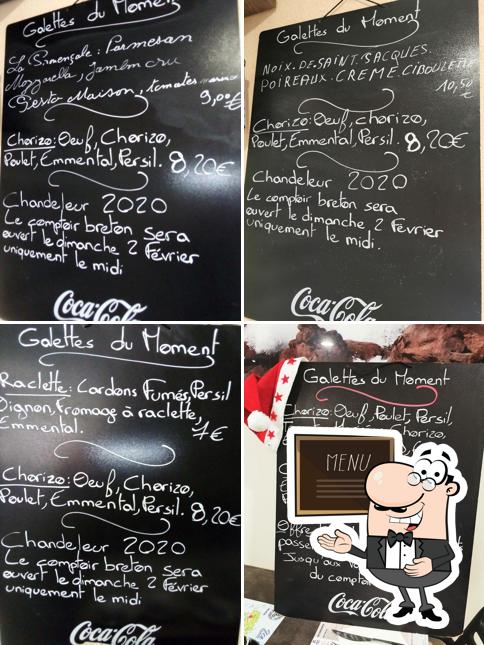 Galettes du Moment
La Provençale : Parmesan
Mozzarella, jambon cru
Pesto Maison, tomates
9,00€
Chorizo: Oeuf, Chorizo,
Poulet, Emmental, Persil. 8,20€
Chandeleur 2020
Le comptoir breton sera
ouvert le dimanche 2 Février
uniquement le midi
Coca-Cola
Galettes du Moment
NOIX.DE.SAINT.JACQUES.
POIREAUX.CREME.CIBOULETTE
10,50
€
Chorizo: Oeuf, chorizo,
Poulet, Emmental, Persil. 8,20€
Chandeleur 2020
Le comptoir breton sera
ouvert le dimanche 2 Février
uniquement le midi.
Coca-Cola
Galettes du Moment
Raclette: Lardons Fumés, Persil
Oignon, Fromage à raclette,
Emmental.
Chorizo: Oeuf, Chorizo,
Poulet, Emmental, Persil. 8,20€
Chandeleur 2020
Le comptoir breton sera
ouvert le dimanche 2 Février
uniquement le midi
Coca-Cola
Galettes du Moment
Chorizo: Oeuf, Poulet, Persil,
Chorizo,
MENU
Jusqu'au
du
Coca-Cola